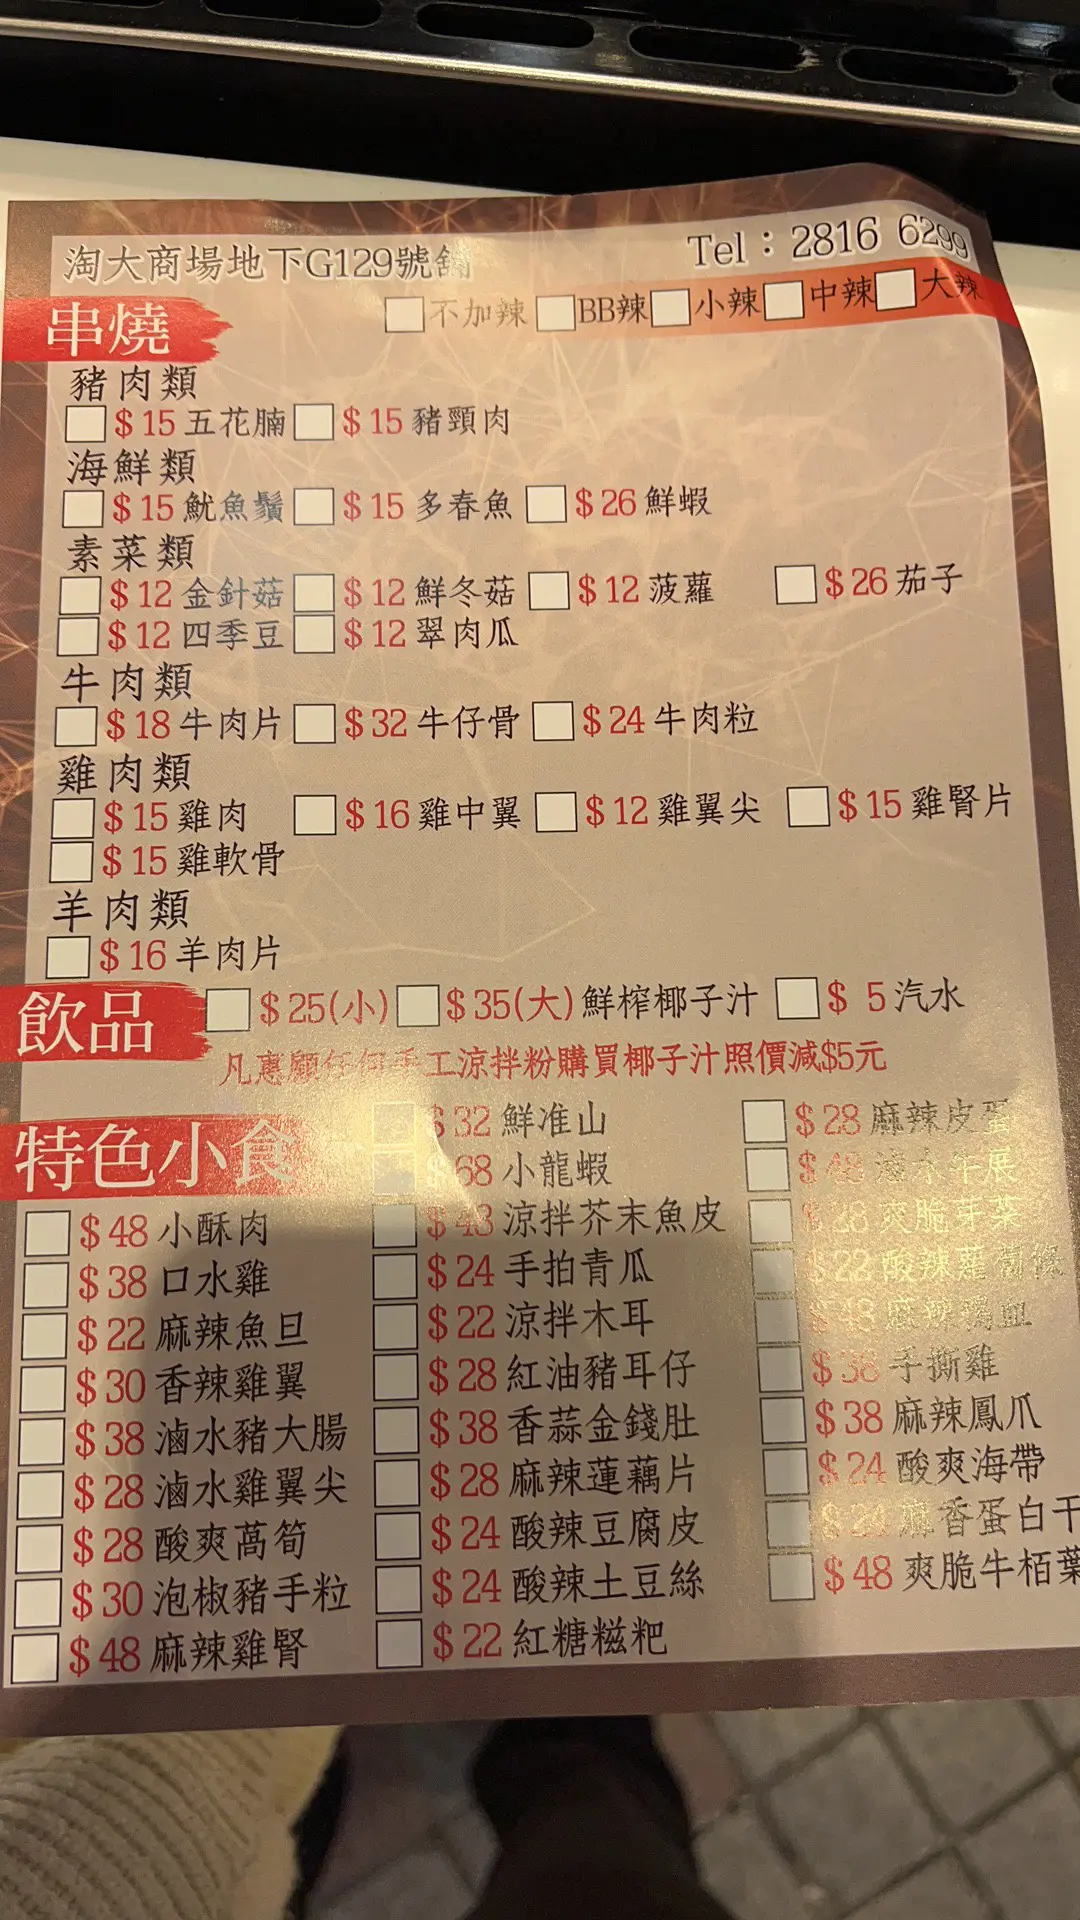 淘大商場地下G129號舖
Tel：2816 6299
不加辣 BB辣 小辣 中辣 大辣
串燒
豬肉類
$15 五花腩 $15 豬頸肉
海鮮類
$15 魷魚鬚 $15 多春魚 $26 鮮蝦
素菜類
$12 金針菇 $12 鮮冬菇 $12 菠蘿 $26 茄子
$12 四季豆 $12 翠肉瓜
牛肉類
$18 牛肉片 $32 牛仔骨 $24 牛肉粒
雞肉類
$15 雞肉 $16 雞中翼 $12 雞翼尖 $15 雞腎片
$15 雞軟骨
羊肉類
$16 羊肉片
飲品
$25(小) $35(大) 鮮榨椰子汁 $ 5 汽水
凡惠顧任何手工涼拌粉購買椰子汁照價減$5元
特色小食
$48 小酥肉
$38 口水雞
$22 麻辣魚旦
$30 香辣雞翼
$38 滷水豬大腸
$28 滷水雞翼尖
$28 酸爽萵筍
$30 泡椒豬手粒
$48 麻辣雞腎
$32 鮮准山
$68 小龍蝦
$43 涼拌芥末魚皮
$24 手拍青瓜
$22 涼拌木耳
$28 紅油豬耳仔
$38 香蒜金錢肚
$28 麻辣蓮藕片
$24 酸辣豆腐皮
$24 酸辣土豆絲
$22 紅糖糍粑
$28 麻辣皮蛋
$48 滷水牛展
$28 爽脆芽菜
$22 酸辣蘿蔔條
$48 麻辣鴨血
$38 手撕雞
$38 麻辣鳳爪
$24 酸爽海帶
$24 麻香蛋白干
$48 爽脆牛栢葉